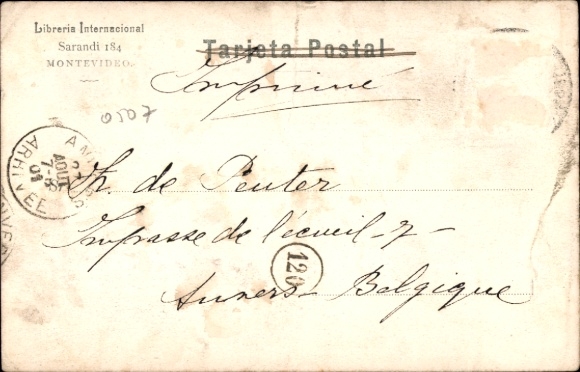 Libreria Internacional
Sarandi 184
MONTEVIDEO.
Tarjeta Postal
Imprimé
0507
AOUT
7-8
ARRIVEE
de Peuter
Impasse de l'écueil - 7 -
120
Anvers - Belgique